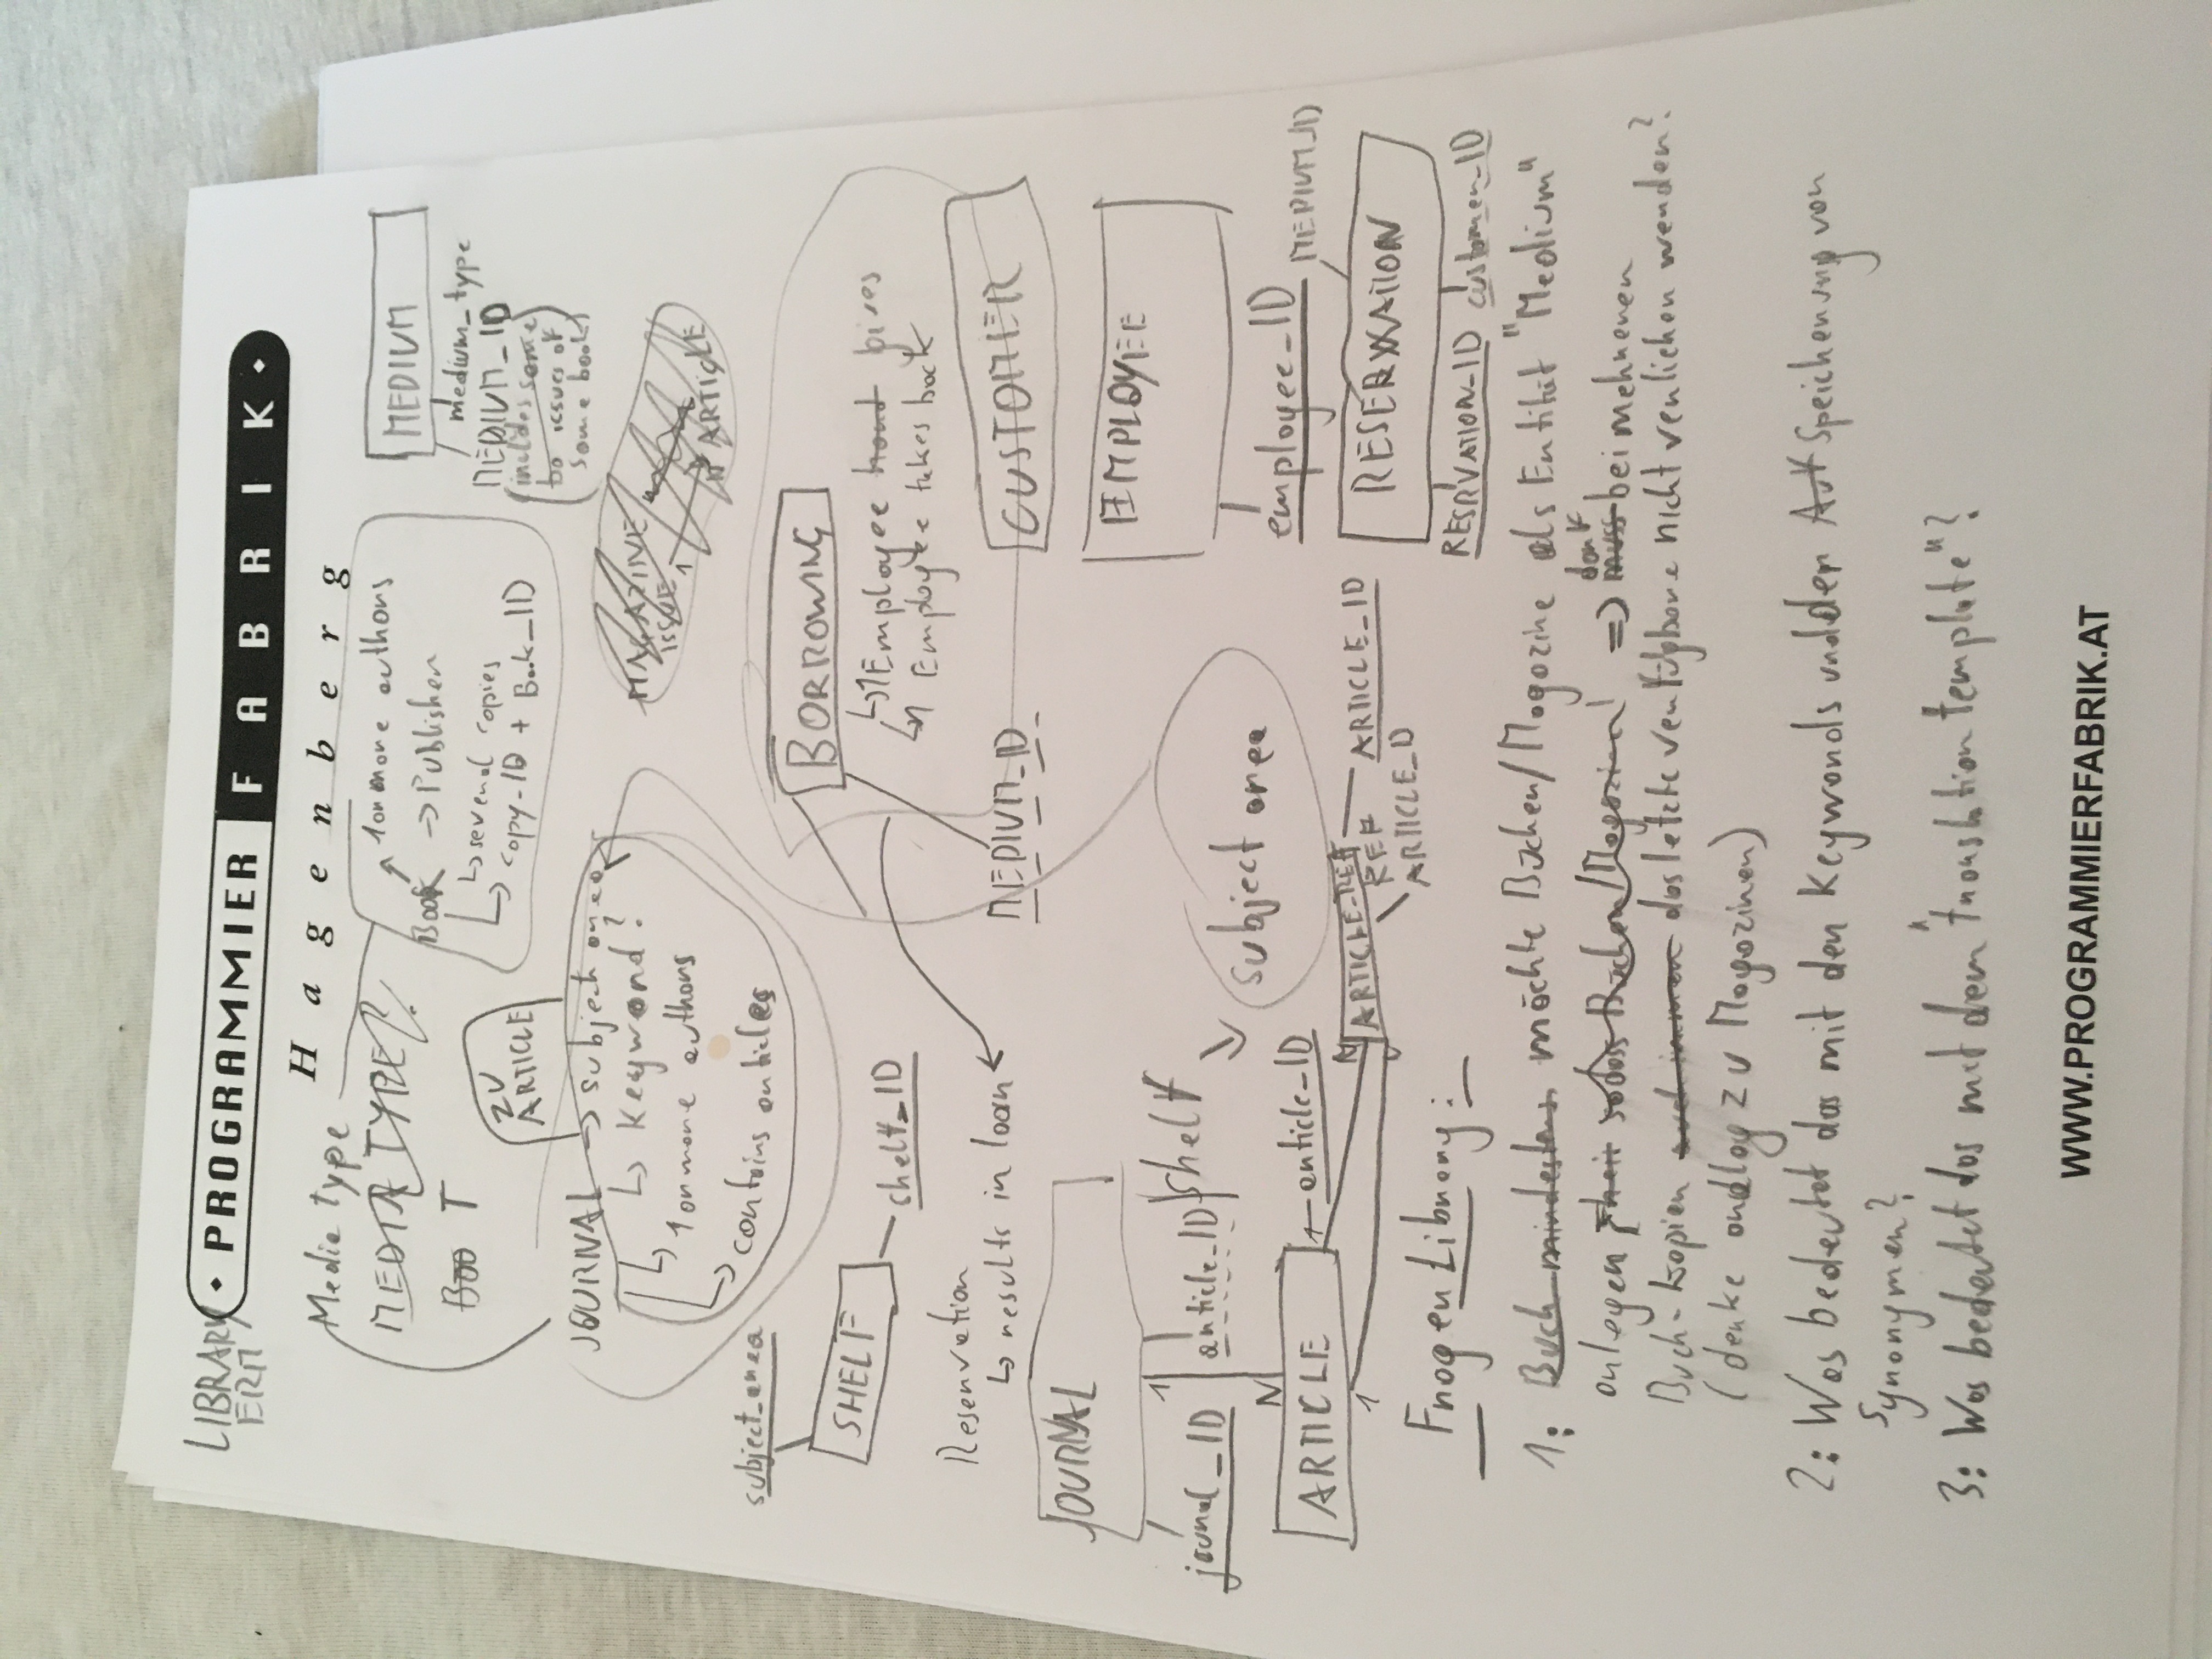 LIBRARY
ERM
PROGRAMMIER FABRIK
Hagenberg
Media type
MEDIA TYPE?
Boo T
ZU
ARTICLE
1 or more authors
Book → Publisher
↳ several copies
↳ copy-ID + Book_ID
MEDIUM
medium_type
MEDIUM_ID
(includes some
bo issues of
some book)
JOURNAL → subject area
↳ Keyword?
↳ 1 or more authors
↳ contains articles
MAGAZINE
ISSUE 1
n ARTICLE
subject_area
SHELF
shelf_ID
BORROWING
↳ 1 Employee hand gives
↳ 1 Employee takes back
Reservation
↳ results in loan
MEDIUM_ID
CUSTOMER
JOURNAL
journal_ID
1
article_ID
shelf
N
subject area
EMPLOYEE
employee_ID
ARTICLE
article_ID
1
N
ARTICLE_REF
ARTICLE_ID
REF
ARTICLE_ID
MEDIUM_ID
RESERVATION
RESRVATION_ID customer_ID
Fragen Library:
1: Buch mindestens möchte Bücher/Magazine als Entität "Medium"
anlegen sodass Bücher/Magazine ⇒ muss darf bei mehreren
Buch-kopien auch immer das letzte verfügbare nicht verliehen werden?
(denke analog zu Magazinen)
2: Was bedeutet das mit den Keywords und der Art Speicherung von
Synonymen?
3: Was bedeutet das mit dem "translation template"?
WWW.PROGRAMMIERFABRIK.AT